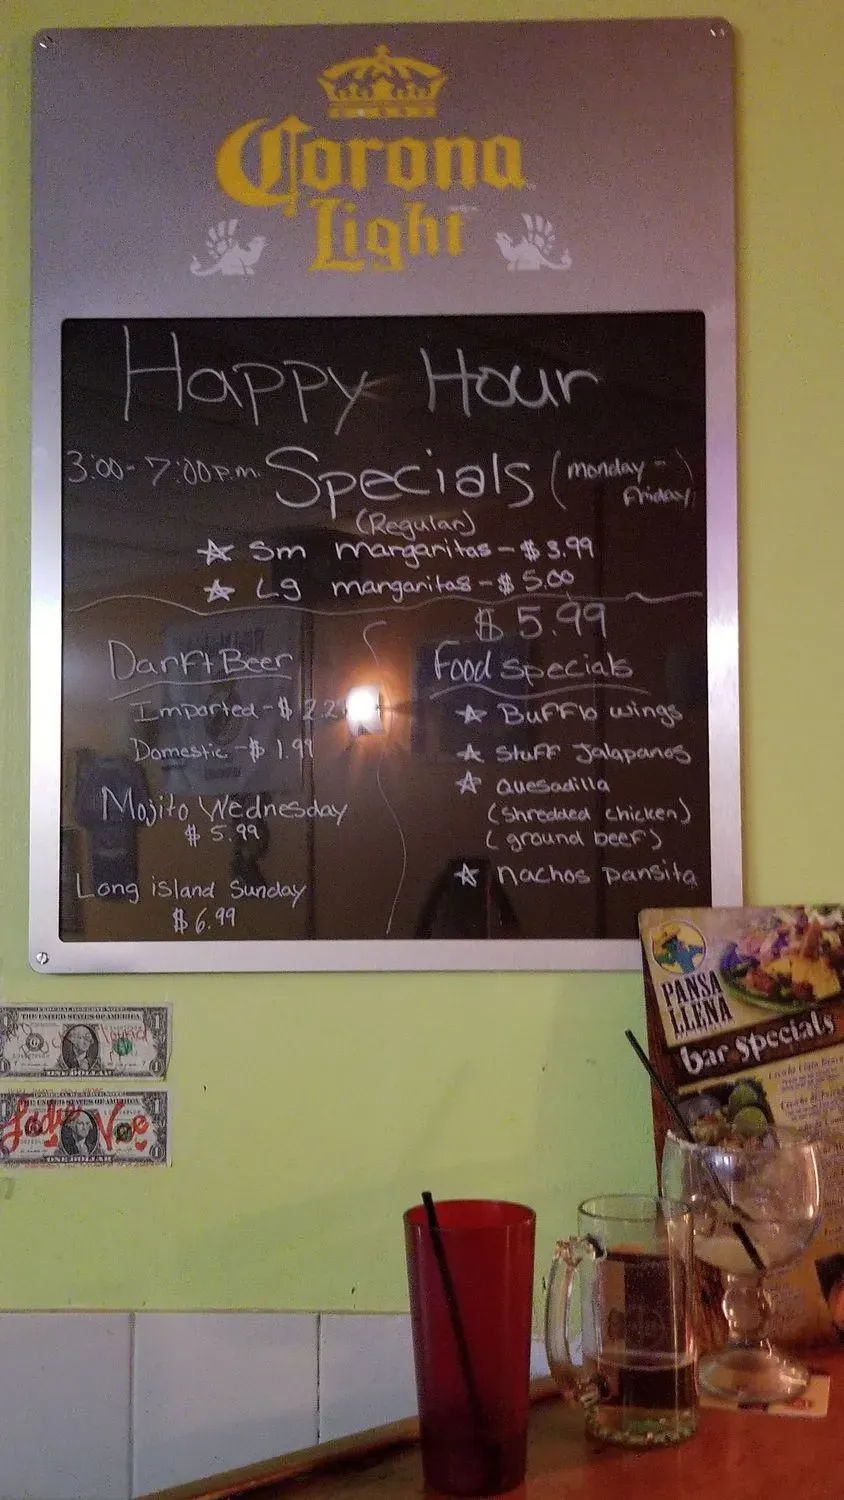 Corona
Light
Happy Hour
3:00-7:00 P.M. Specials (Monday - Friday)
(Regular)
☆ Sm margaritas - $3.99
☆ Lg margaritas - $5.00
$5.99
Darft Beer
Imported - $2.2
Domestic - $1.99
Mojito Wednesday
$5.99
Long island Sunday
$6.99
Food Specials
☆ Bufflo wings
☆ Stuff Jalapanos
☆ Quesadilla
(shredded chicken)
(ground beef)
☆ nachos pansita
PANSA
LLENA
bar specials
FEDERAL RESERVE NOTE
THE UNITED STATES OF AMERICA
ONE DOLLAR
FEDERAL RESERVE NOTE
THE UNITED STATES OF AMERICA
ONE DOLLAR